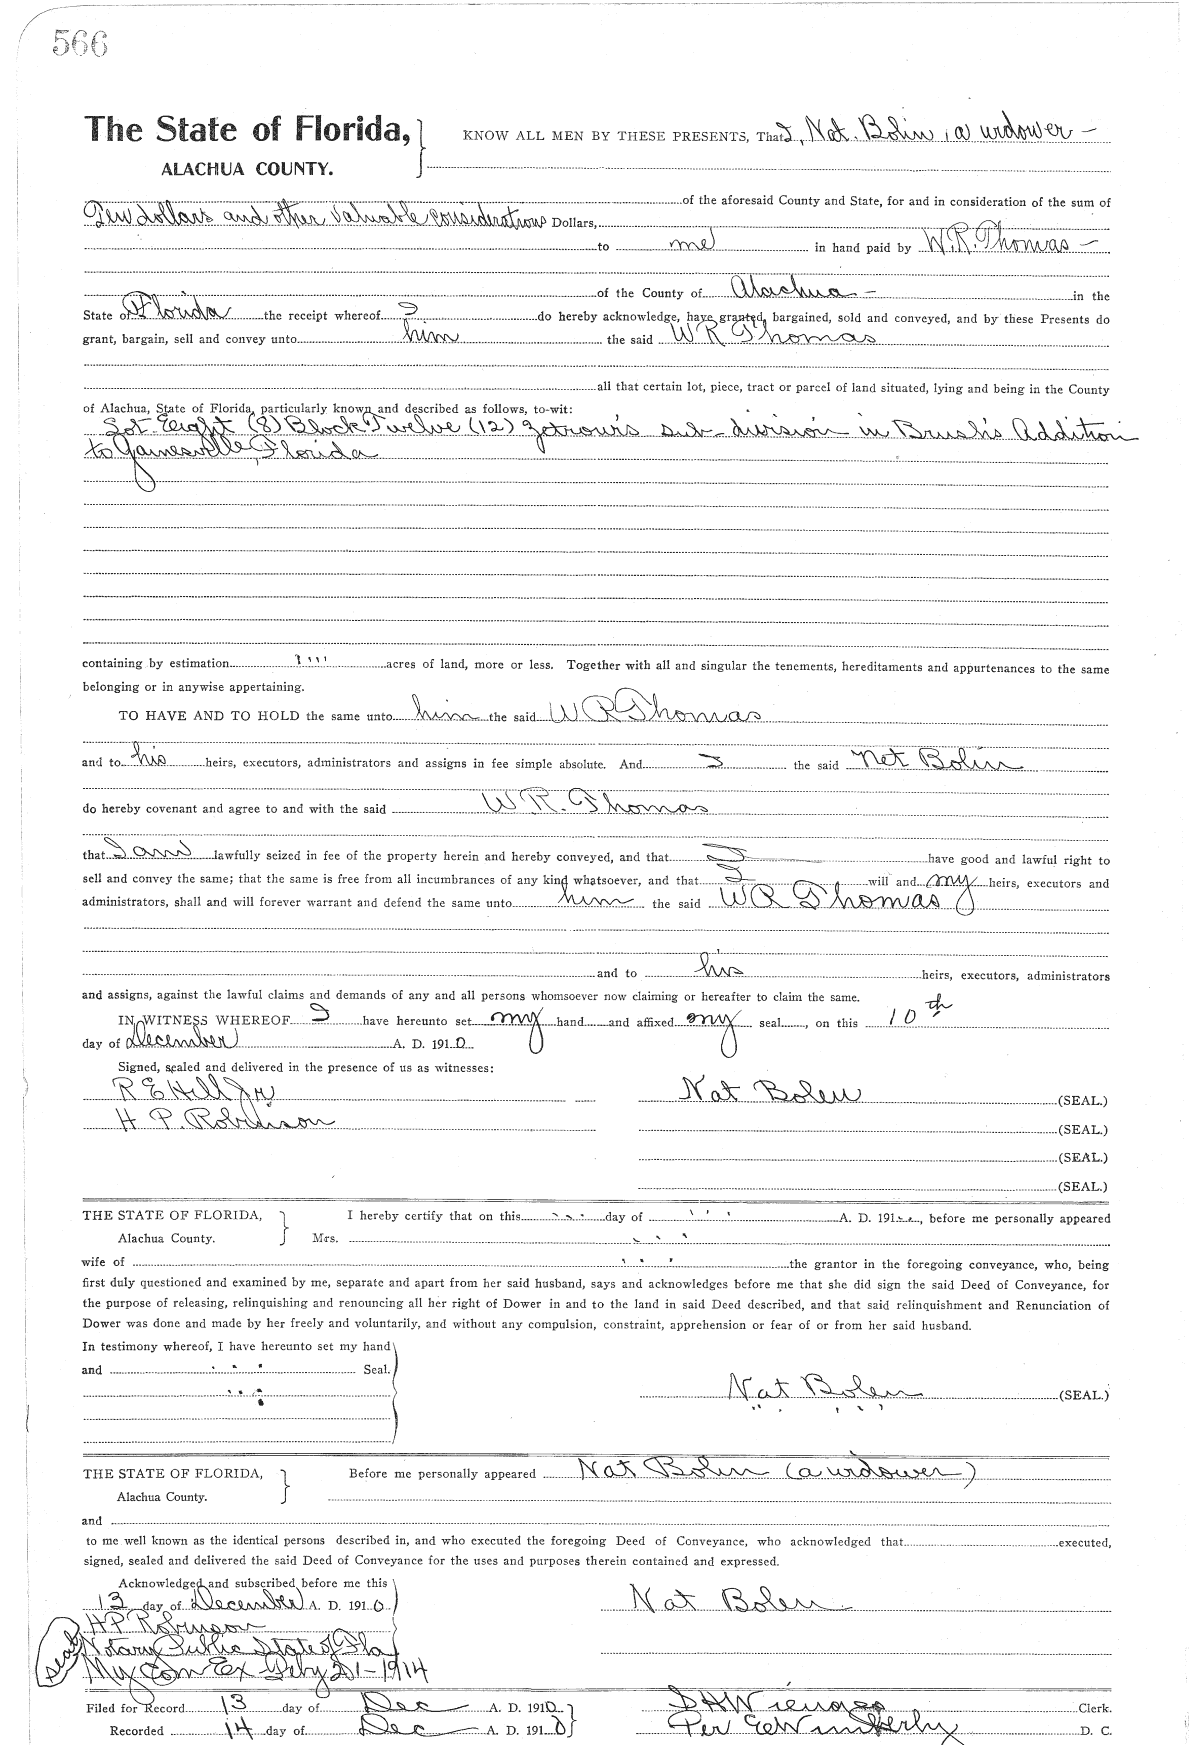 566
The State of Florida, KNOW ALL MEN BY THESE PRESENTS, That I, Nat. Bolin, a widower –
ALACHUA COUNTY.
of the aforesaid County and State, for and in consideration of the sum of
Ten dollars and other valuable considerations Dollars,
to me in hand paid by W. R. Thomas –
of the County of Alachua – in the
State of Florida the receipt whereof I do hereby acknowledge, have granted, bargained, sold and conveyed, and by these Presents do
grant, bargain, sell and convey unto him the said W R Thomas
all that certain lot, piece, tract or parcel of land situated, lying and being in the County
of Alachua, State of Florida, particularly known and described as follows, to-wit:
Lot Eight (8) Block Twelve (12) Zetrour's sub-division in Brush's Addition
to Gainesville, Florida
containing by estimation acres of land, more or less. Together with all and singular the tenements, hereditaments and appurtenances to the same
belonging or in anywise appertaining.
TO HAVE AND TO HOLD the same unto him the said W R Thomas
and to his heirs, executors, administrators and assigns in fee simple absolute. And I the said Net Bolin
do hereby covenant and agree to and with the said W. R. Thomas
that I am lawfully seized in fee of the property herein and hereby conveyed, and that I have good and lawful right to
sell and convey the same; that the same is free from all incumbrances of any kind whatsoever, and that I will and my heirs, executors and
administrators, shall and will forever warrant and defend the same unto him the said W R Thomas
and to his heirs, executors, administrators
and assigns, against the lawful claims and demands of any and all persons whomsoever now claiming or hereafter to claim the same.
IN WITNESS WHEREOF I have hereunto set my hand and affixed my seal, on this 10th
day of December A. D. 1910
Signed, sealed and delivered in the presence of us as witnesses:
R E Hill Jr Nat Bolen (SEAL.)
H P. Robinson (SEAL.)
(SEAL.)
(SEAL.)
THE STATE OF FLORIDA, I hereby certify that on this day of A. D. 191, before me personally appeared
Alachua County. Mrs.
wife of the grantor in the foregoing conveyance, who, being
first duly questioned and examined by me, separate and apart from her said husband, says and acknowledges before me that she did sign the said Deed of Conveyance, for
the purpose of releasing, relinquishing and renouncing all her right of Dower in and to the land in said Deed described, and that said relinquishment and Renunciation of
Dower was done and made by her freely and voluntarily, and without any compulsion, constraint, apprehension or fear of or from her said husband.
In testimony whereof, I have hereunto set my hand
and Seal.
Nat Bolen (SEAL.)
THE STATE OF FLORIDA, Before me personally appeared Nat Bolin (a widower)
Alachua County.
and
to me well known as the identical persons described in, and who executed the foregoing Deed of Conveyance, who acknowledged that executed,
signed, sealed and delivered the said Deed of Conveyance for the uses and purposes therein contained and expressed.
Acknowledged and subscribed before me this
13 day of December A. D. 1910 Nat Bolen
H P Robinson
seal Notary Public State of Fla
My Com Ex Feby 21-1914
Filed for Record 13 day of Dec A. D. 1910 Clerk.
Recorded 14 day of Dec A. D. 1910 Per E Wimberly D. C.